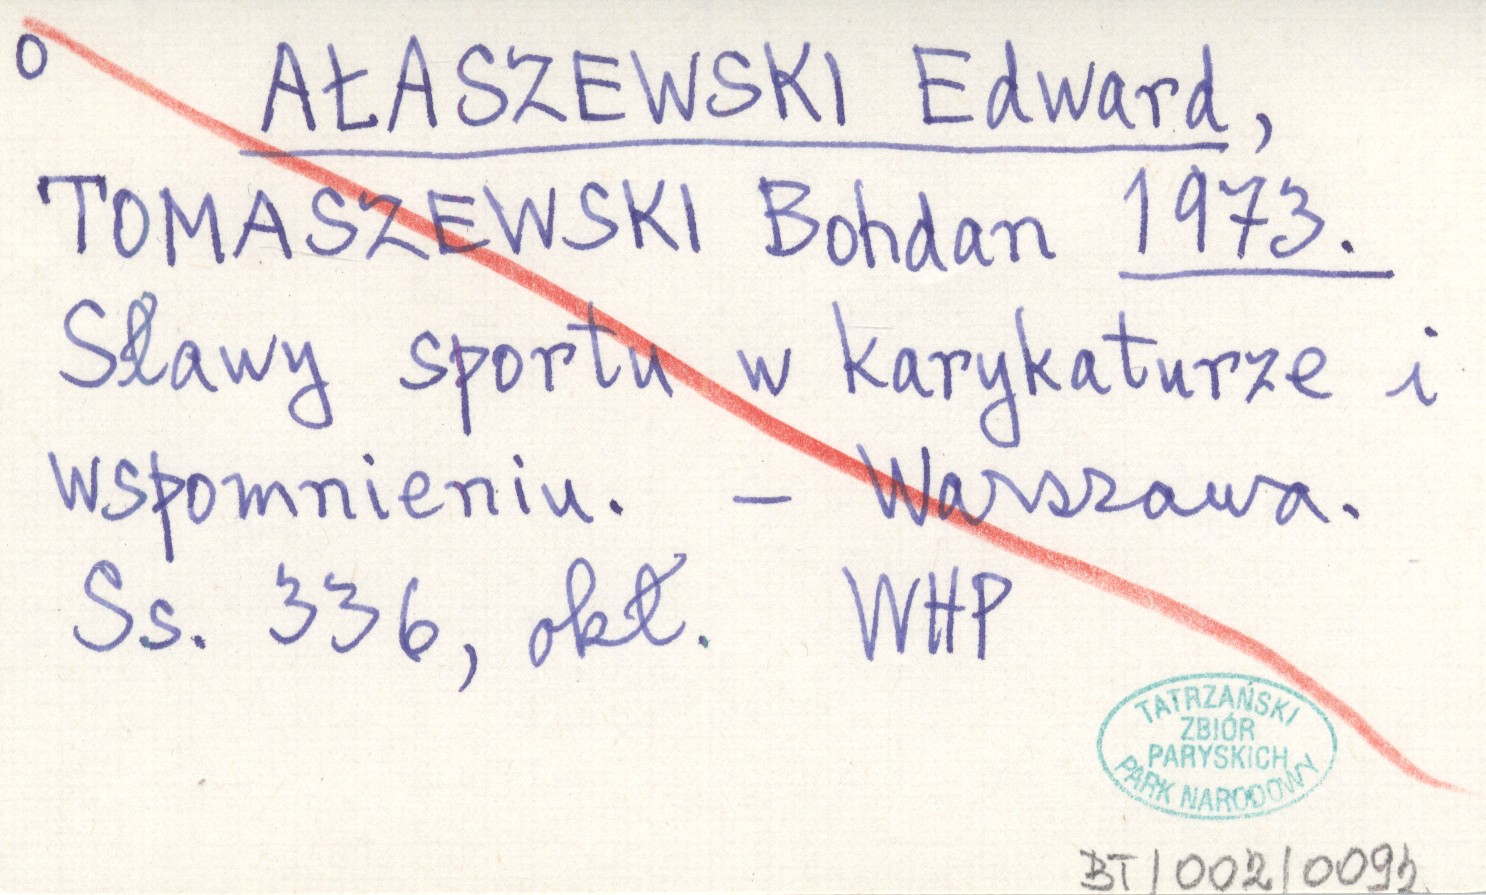 o
AŁASZEWSKI Edward,
TOMASZEWSKI Bohdan 1973.
Sławy sportu w karykaturze i
wspomnieniu. – Warszawa.
Ss. 336, okł. WHP
TATRZAŃSKI
ZBIÓR
PARYSKICH
PARK NARODOWY